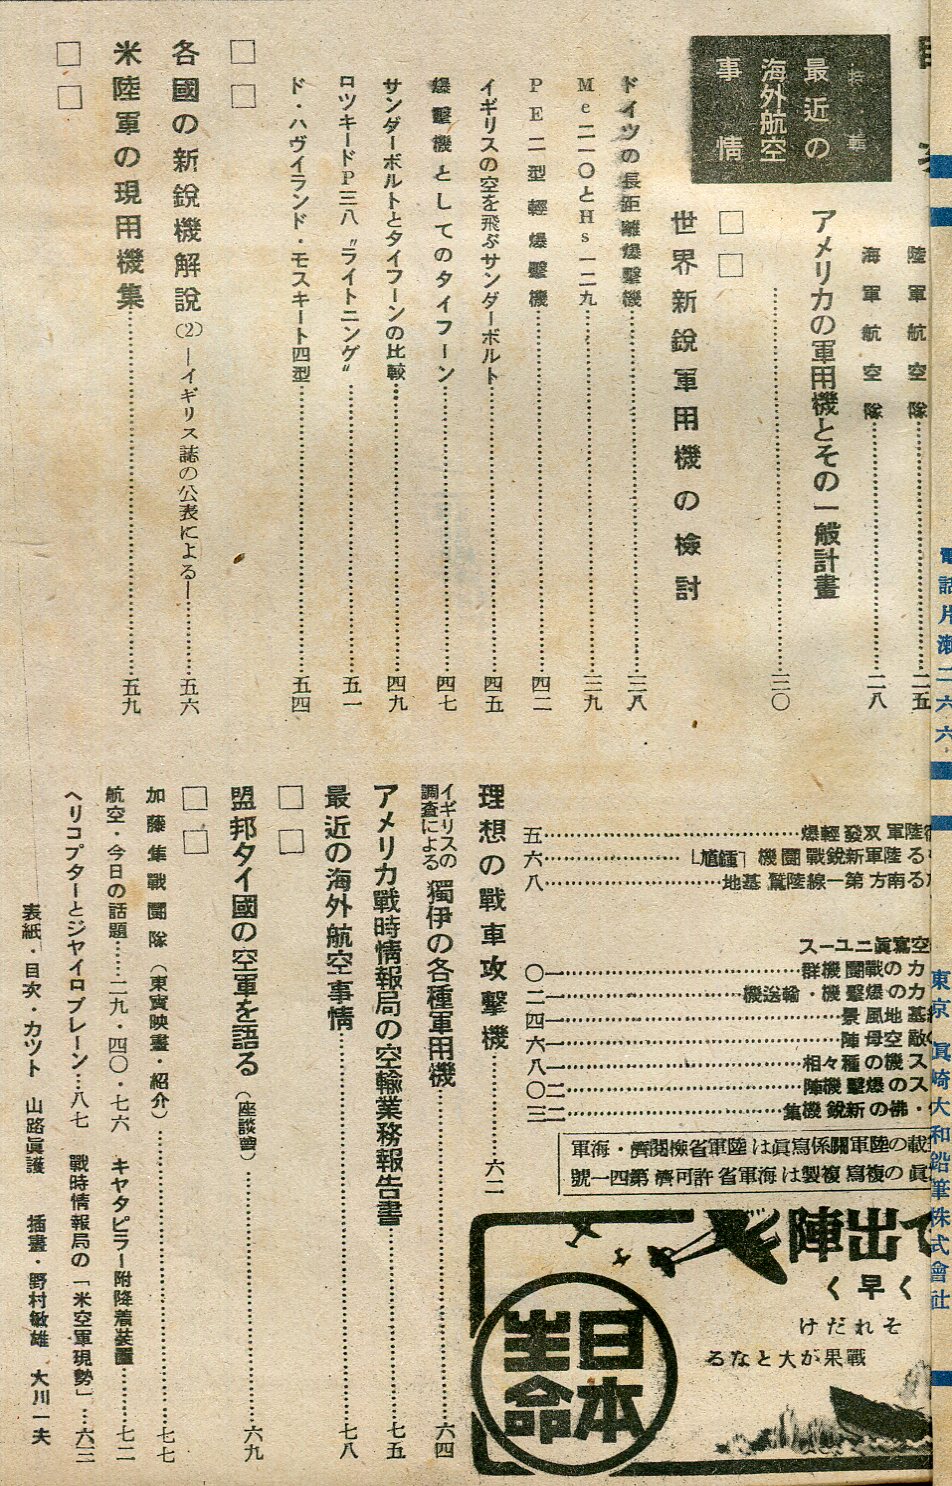 目次
特輯
最近の
海外航空
事情
陸軍航空隊……二五
海軍航空隊……二八
アメリカの軍用機とその一般計畫
……三〇
□□
世界新銳軍用機の檢討
ドイツの長距離爆擊機……三八
Me二一〇とHs一二九……三九
PE二型輕爆擊機……四二
イギリスの空を飛ぶサンダーボルト……四五
爆擊機としてのタイフーン……四七
サンダーボルトとタイフーンの比較……四九
ロツキードP三八〝ライトニング〟……五一
ド・ハヴイランド・モスキート四型……五四
□□
各國の新銳機解說(2)—イギリス誌の公表による—……五六
米陸軍の現用機集……五九
□□
陸軍双發輕爆……五
る陸軍新銳戰鬪機「鍾馗」……六
る南方第一線陸鷲基地……八
空寫眞ニユース
カの戰鬪機群……一〇
カの爆擊機・輸送機……一二
基地風景……一四
敵空母陣……一六
ス機の種々相……一八
スの爆擊機陣……二〇
・佛の新銳機集……二三
載の陸軍關係寫眞は陸軍省檢閱濟・海軍
眞の複寫複製は海軍省許可濟第四一號
理想の戰車攻擊機……六二
イギリスの調査による 獨伊の各種軍用機……六四
アメリカ戰時情報局の空輸業務報告書……七五
最近の海外航空事情……七八
□□
盟邦タイ國の空軍を語る(座談會)……六九
□□
加藤隼戰鬪隊(東寶映畫・紹介)……七七
航空・今日の話題……二九・四〇・七六 キヤタピラー附降着裝置……七二
ヘリコプターとジヤイロプレーン…八七 戰時情報局の「米空軍現勢」…六三
表紙・目次・カツト 山路眞護 插畫・野村敏雄 大川一夫
で出陣
く早く
それだけ
戰果が大となる
日本
生命
電話片瀨二六六
東京 眞崎大和鉛筆株式會社